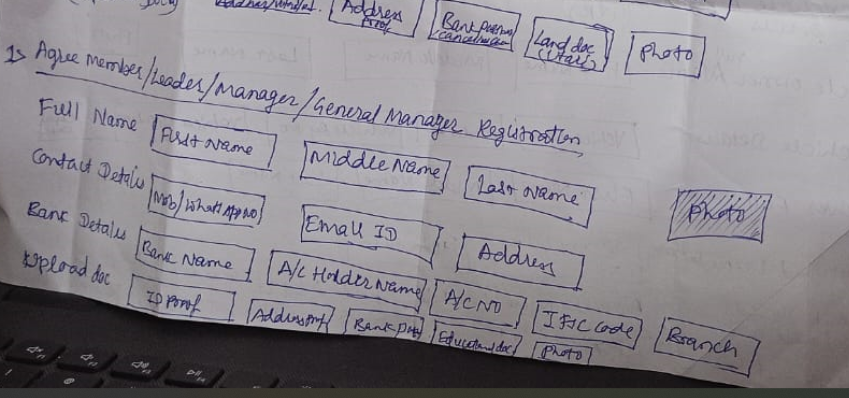 Address Proof Bank Passbook/cancellation Land doc (7/12,8A) Photo
1> Agree Member/Leader/Manager/General Manager Registration
Full Name First Name Middle Name Last Name
Photo
Contact Details Mob/WhatsApp No Email ID Address
Bank Details Bank Name A/C Holder Name A/C NO IFSC Code Branch
Upload doc ID Proof Address Prf Bank Educational doc Photo